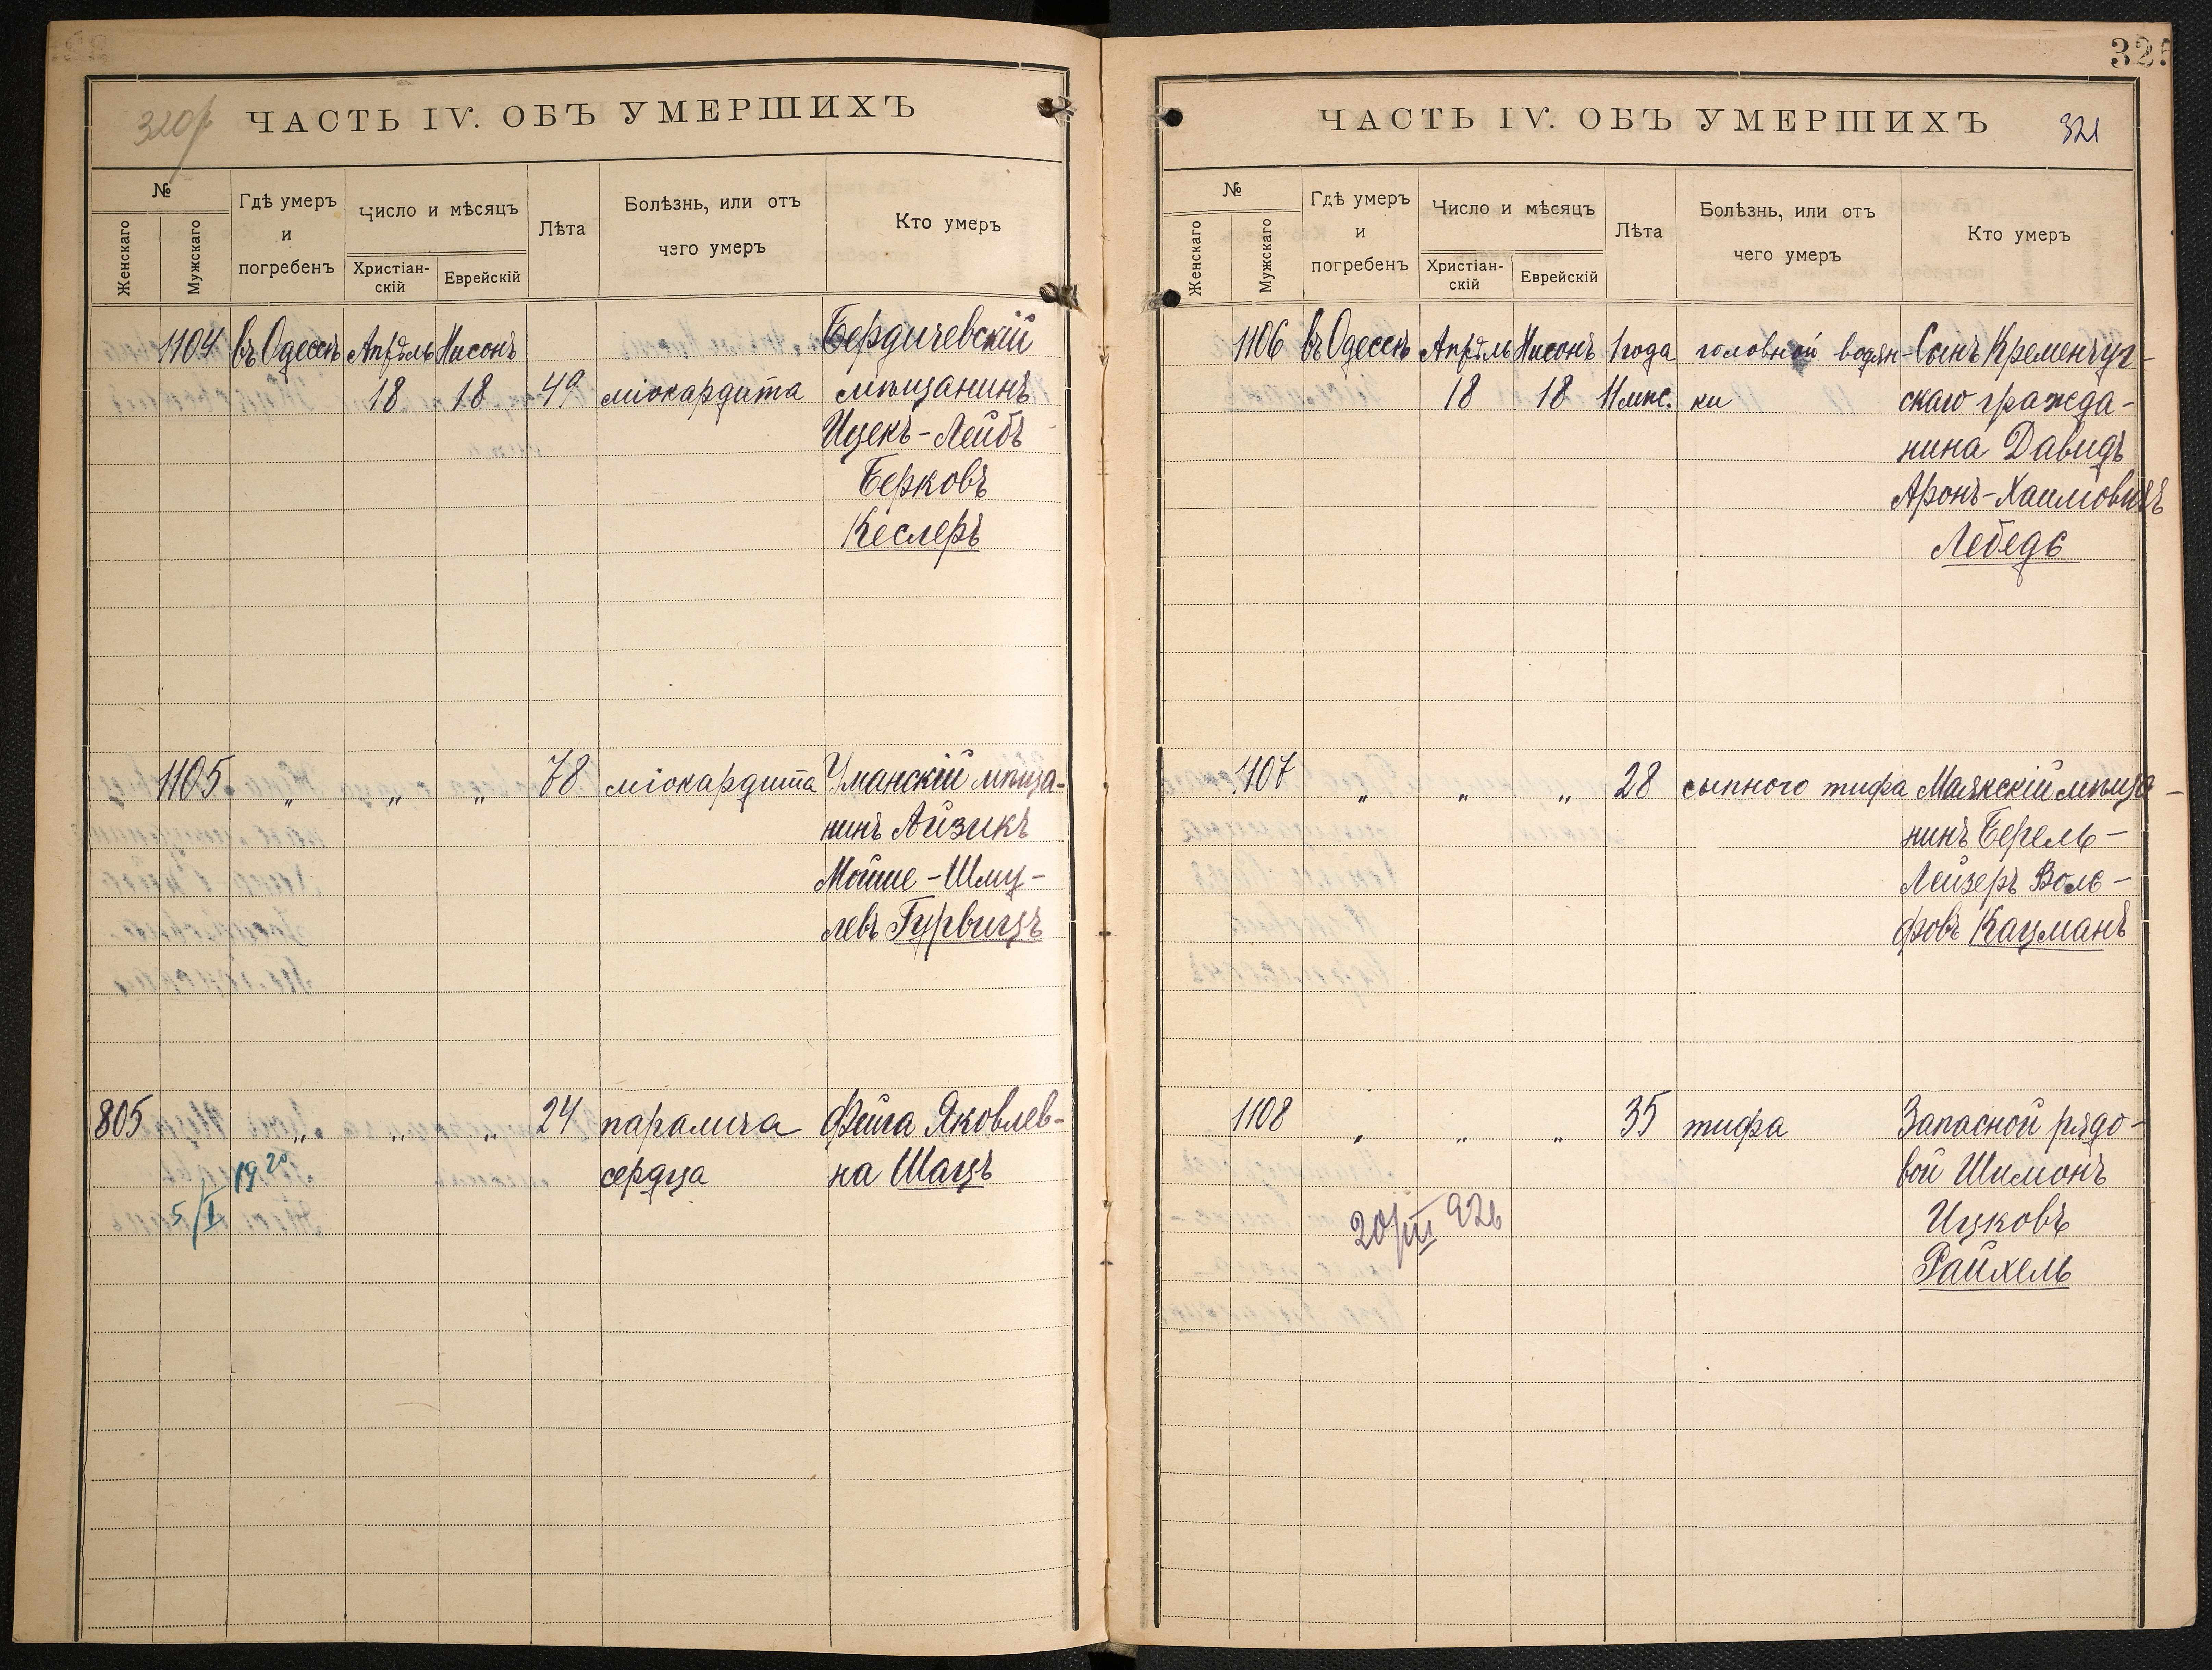 320
ЧАСТЬ IV. ОБЪ УМЕРШИХЪ
№
Женскаго
Мужскаго
Гдѣ умеръ
и
погребенъ
Число и мѣсяцъ
Христіан-
скій
Еврейскій
Лѣта
Болѣзнь, или отъ
чего умеръ
Кто умеръ
1104 въ Одессѣ Апрѣль Нисонъ Бердичевскій
18 18 49 міокардита мѣщанинъ
Ицекъ-Лейбъ
Берковъ
Кеслеръ
1105 „ „ „ 78 міокардита Уманскій мѣща-
нинъ Айзикъ
Мойше-Шму-
левъ Гурвицъ
805 „ „ „ 24 паралича Фейга Яковлев-
сердца на Шацъ
5/I 1920
32
ЧАСТЬ IV. ОБЪ УМЕРШИХЪ 321
№
Женскаго
Мужскаго
Гдѣ умеръ
и
погребенъ
Число и мѣсяцъ
Христіан-
скій
Еврейскій
Лѣта
Болѣзнь, или отъ
чего умеръ
Кто умеръ
1106 въ Одессѣ Апрѣль Нисонъ 1 года головной водян- Сынъ Кременчуг-
18 18 11 мѣс. ки скаго гражда-
нина Давидъ
Аронъ-Хаимовичъ
Лебедь
1107 „ „ „ 28 сыпного тифа Маякскій мѣща-
нинъ Берель-
Лейзеръ Воль-
фовъ Кацманъ
1108 „ „ „ 35 тифа Запасной рядо-
вой Шимонъ
Ицковъ
Райхель
20/III 926